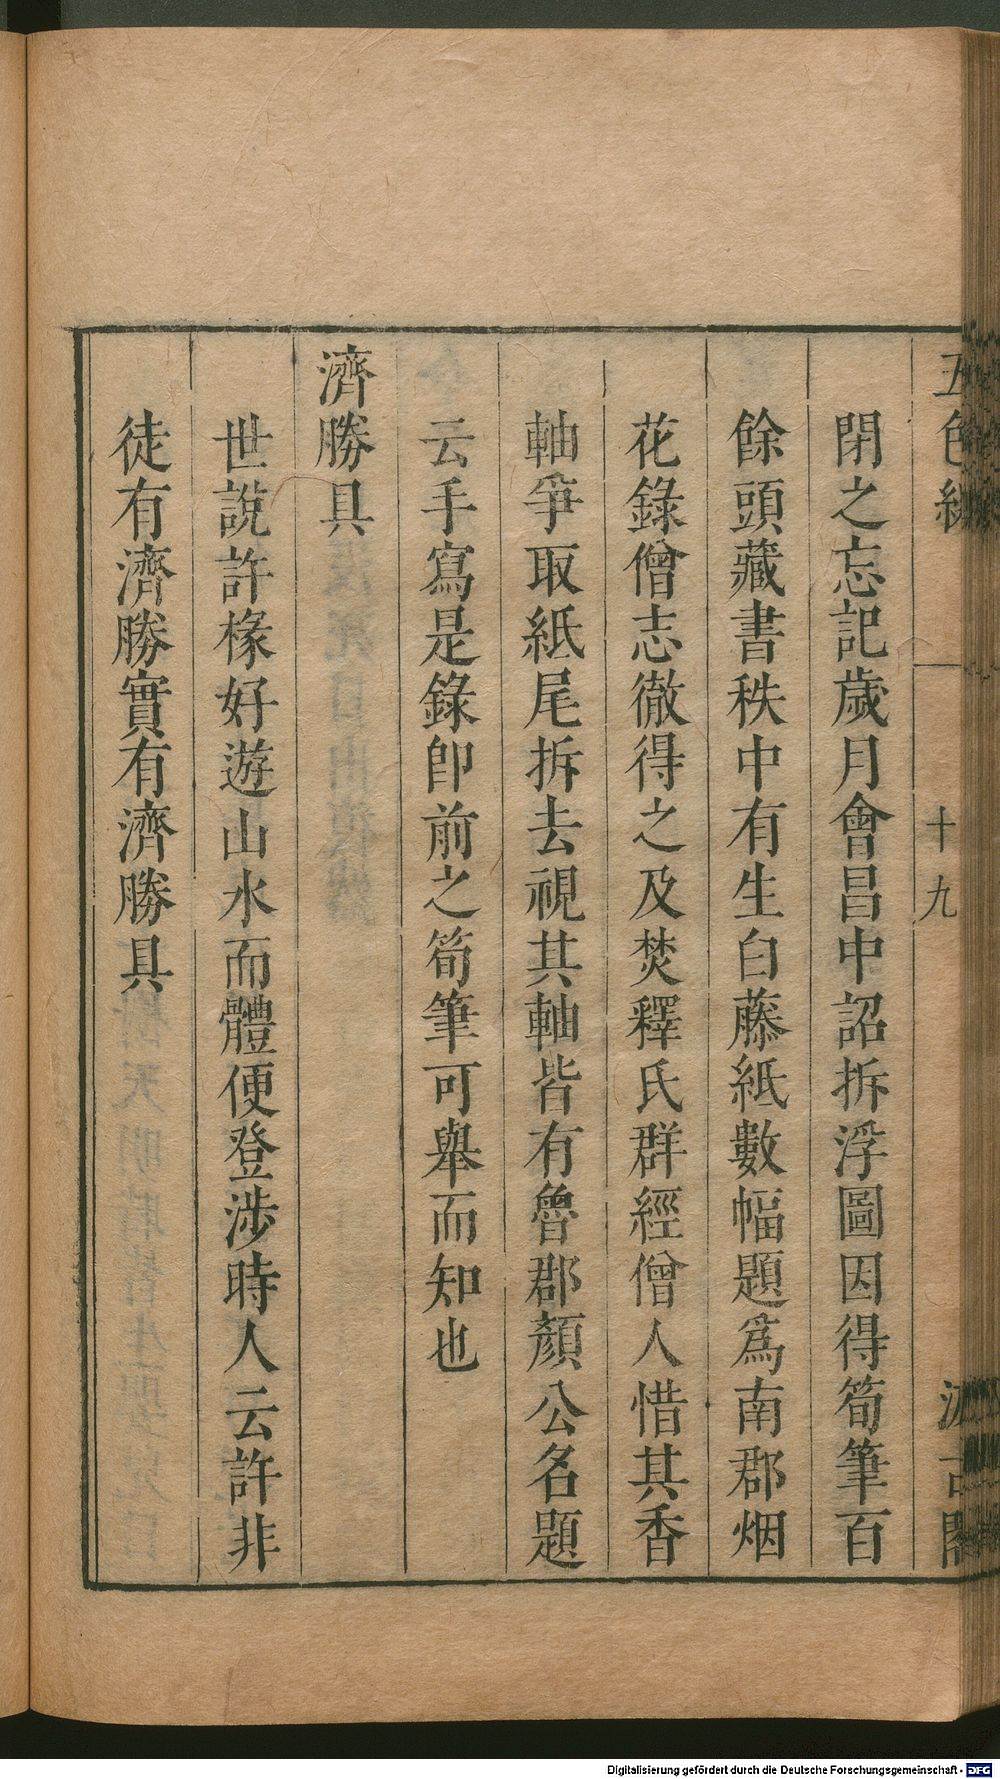 五色線
十九
汲古閣
閉之忘記歲月會昌中詔拆浮圖因得筍筆百
餘頭藏書秩中有生白藤紙數幅題爲南郡烟
花錄僧志徹得之及焚釋氏群經僧人惜其香
軸爭取紙尾拆去視其軸皆有魯郡顏公名題
云手寫是錄卽前之筍筆可舉而知也
濟勝具
世說許椽好遊山水而體便登涉時人云許非
徒有濟勝實有濟勝具
Digitalisierung gefördert durch die Deutsche Forschungsgemeinschaft - DFG